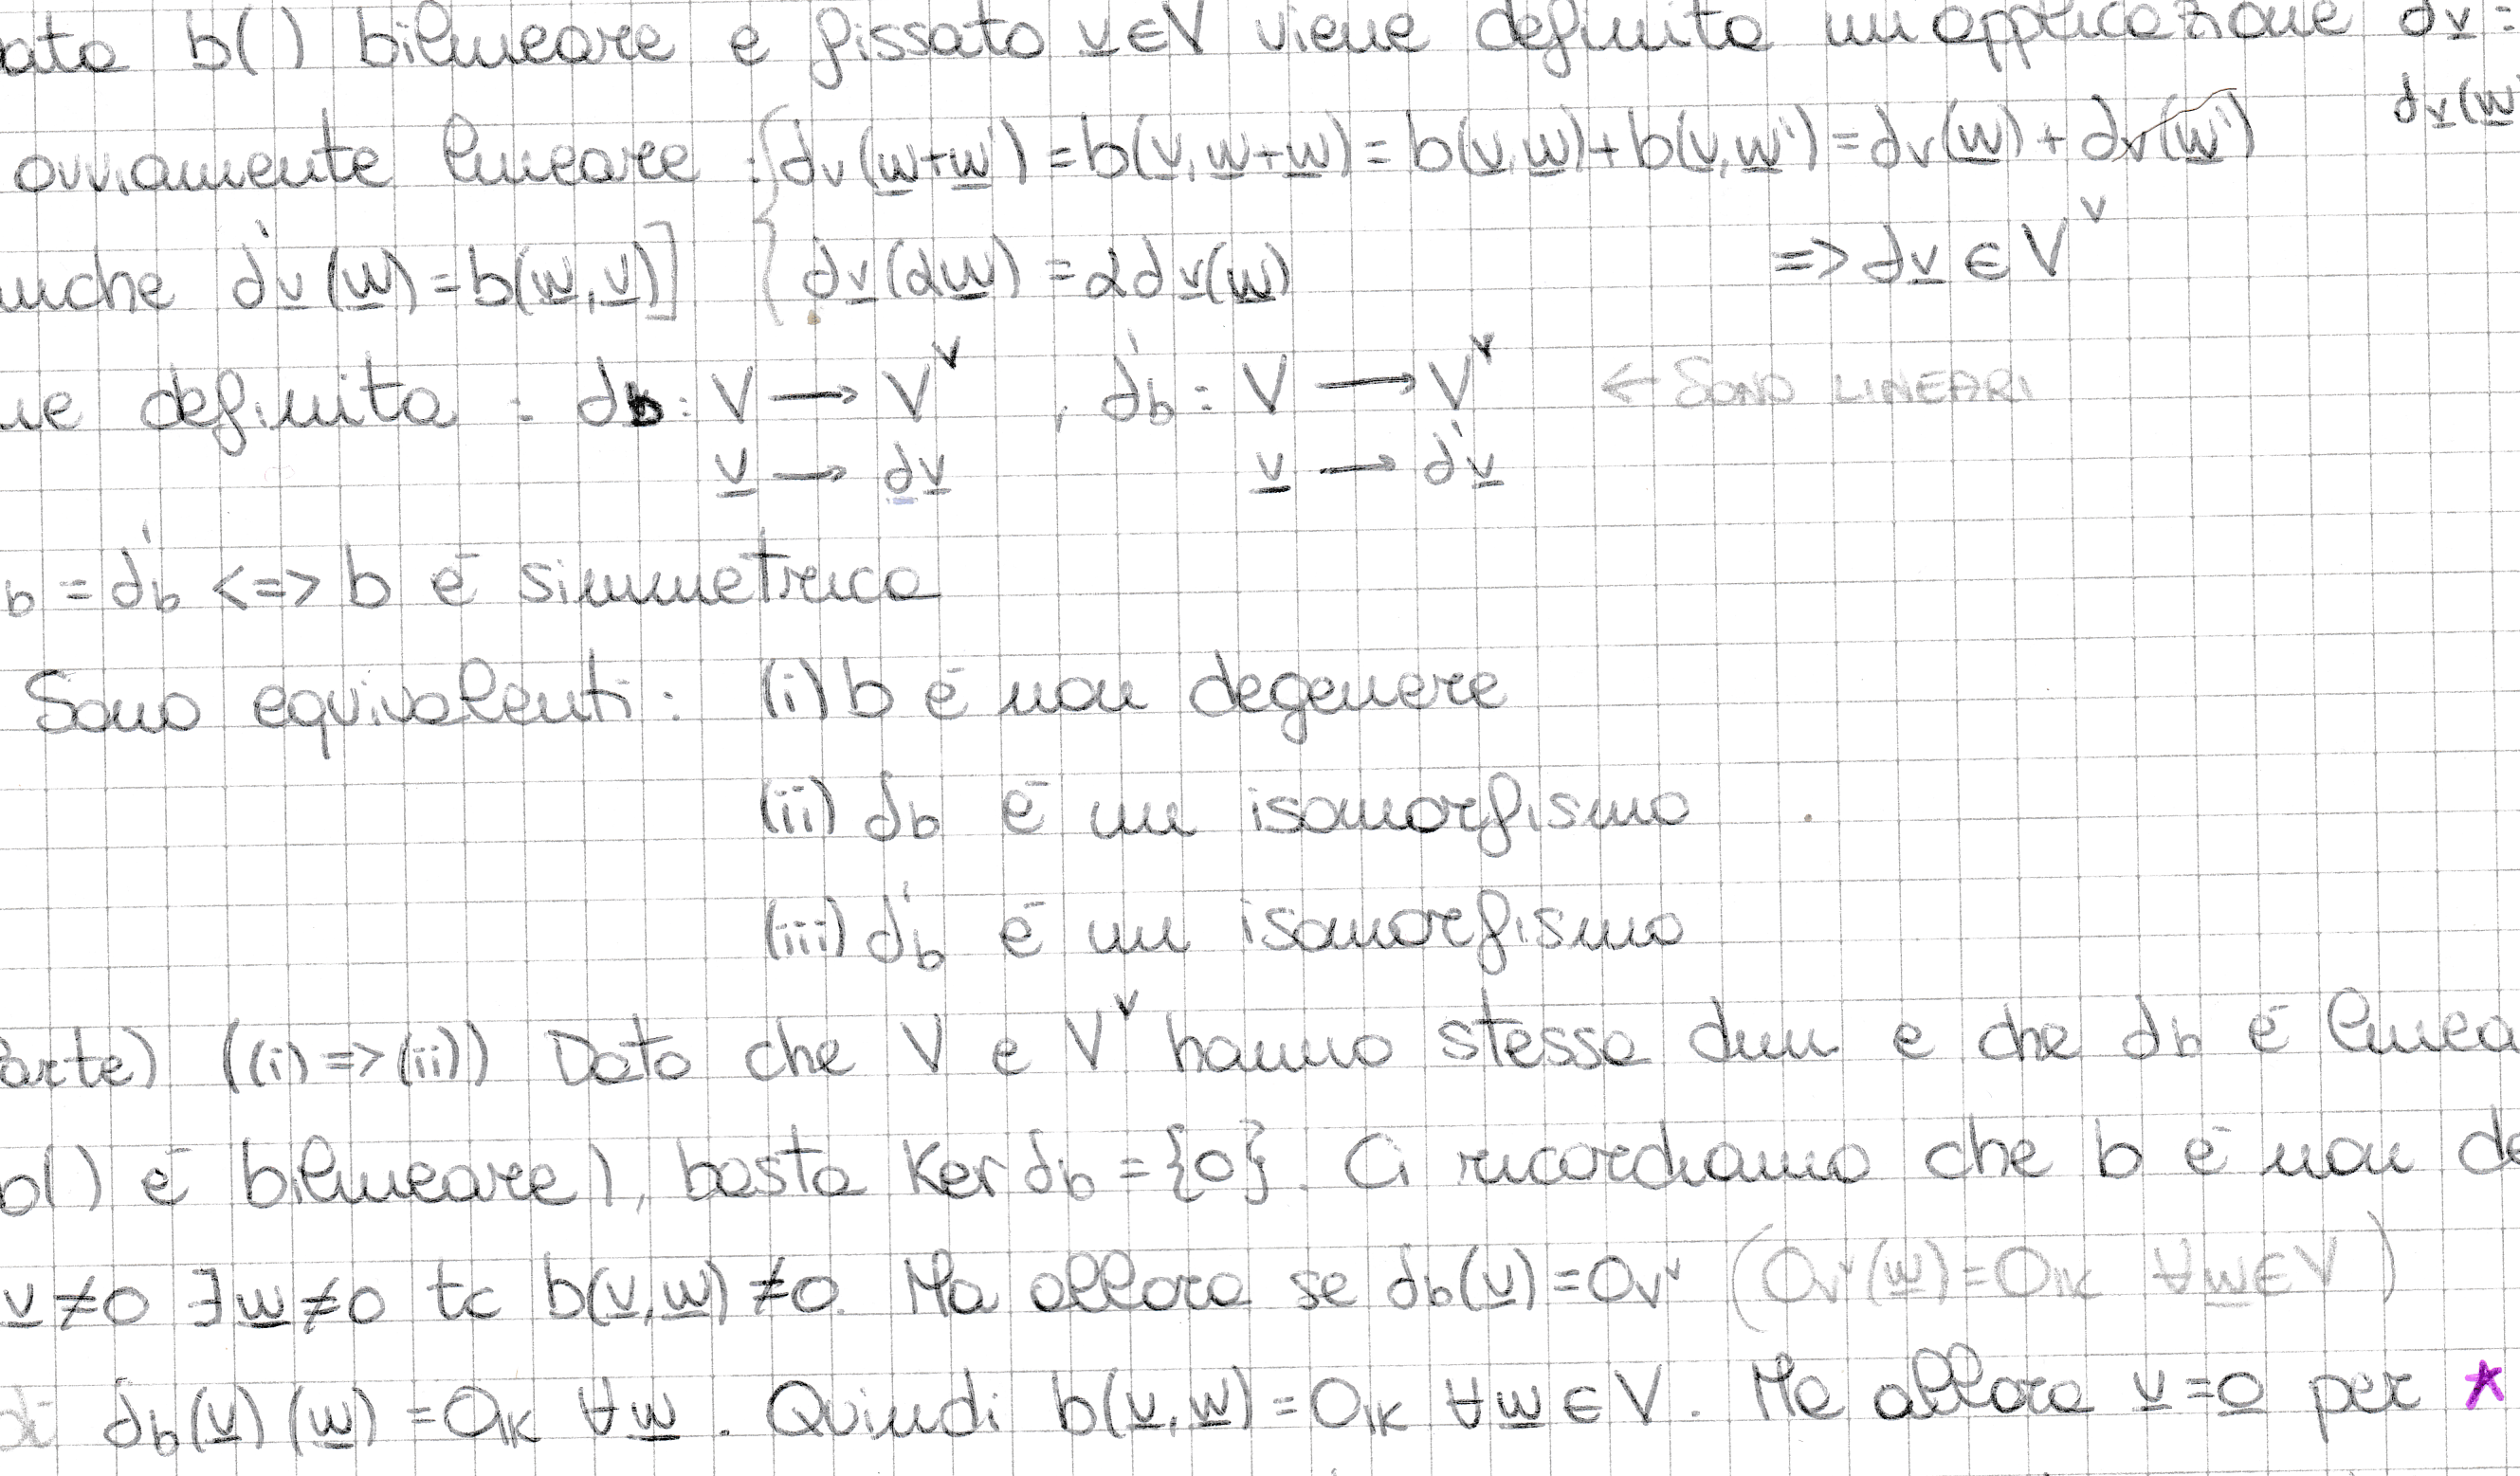 ata b() bilineare e fissato v∈V viene definita un'applicazione δv:
δv(w
ovviamente lineare : { δv(w+w') = b(v,w+w) = b(v,w)+b(v,w') = δv(w) + δv(w')
anche δ'v(w) = b(w,v)] { δv(αw) = αδv(w) => δv ∈ V^v
ne definita : δb: V → V^v , δ'b: V → V^v ← SONO LINEARI
v → δv v → δ'v
b = δ'b <=> b é simmetrica
Sono equivalenti : (i) b é non degenere
(ii) δb é un isomorfismo .
(iii) δ'b é un isomorfismo
arte) ((i) => (ii)) Dato che V e V^v hanno stessa dim e che δb é linea
b() é bilineare), basta Ker δb = {0}. Ci ricordiamo che b é non de
v≠0 ∃w≠0 tc b(v,w) ≠0. Ma allora se δb(v) = 0v^v (0v^v(w) = 0K ∀w∈V)
di δb(v)(w) = 0K ∀w . Quindi b(v,w) = 0K ∀w∈V. Ma allora v=0 per *